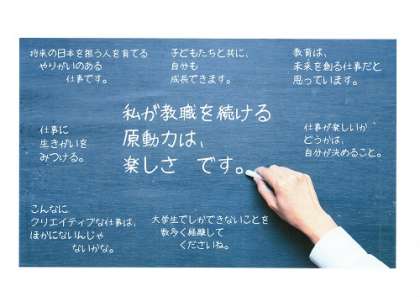 将来の日本を担う人を育てる
やりがいのある
仕事です。
子どもたちと共に、
自分も
成長できます。
教育は、
未来を創る仕事だと
思っています。
私が教職を続ける
原動力は、
楽しさ です。
仕事に
生きがいを
みつける。
仕事が楽しいか
どうかは、
自分が決めること。
こんなに
クリエイティブな仕事は、
ほかにないんじゃ
ないかな。
大学生でしかできないことを
数多く経験して
くださいね。